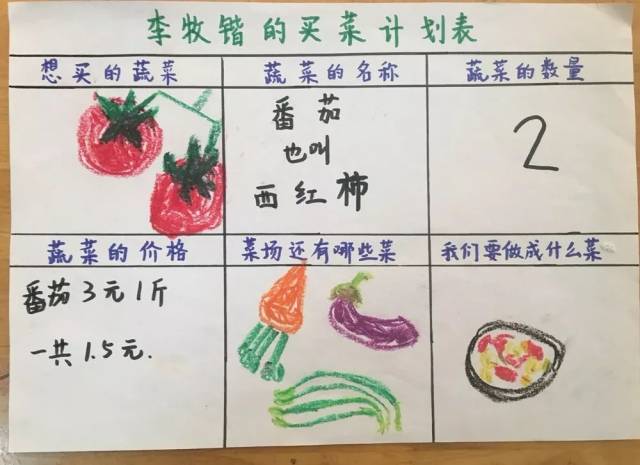 李牧锴的买菜计划表
想买的蔬菜
蔬菜的名称
蔬菜的数量
番茄
也叫
西红柿
2
蔬菜的价格
菜场还有哪些菜
我们要做成什么菜
番茄3元1斤
一共1.5元.